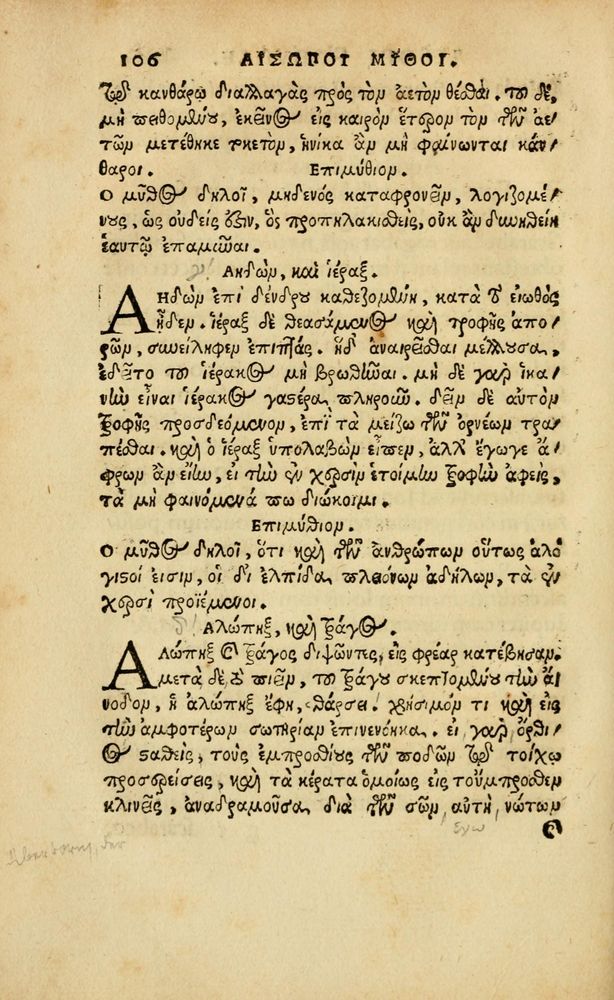 106 ΑΙΣΩΠΟΥ ΜΥΘΟΙ.
τῷ κανθάρῳ διαλλαγὰς πρὸς τὸν ἀετὸν θέσθαι. τοῦ δὲ,
μὴ πειθομένου, ἐκεῖνος εἰς καιρὸν ἕτερον τὸν τῶν ἀε-
τῶν μετέθηκε τοκετὸν, ἡνίκα ἂν μὴ φαίνωνται κάν-
θαροι. Επιμύθιον.
Ο μῦθος δηλοῖ, μηδενὸς καταφρονεῖν, λογιζομέ-
νους, ὡς οὐδείς ἐστιν, ὃς προπηλακισθεὶς, οὐκ ἂν δυνηθείη
ἑαυτῷ ἐπαμῦναι.
Αηδὼν, καὶ ἱέραξ.
ΑΗδὼν ἐπὶ δένδρου καθεζομένη, κατὰ τὸ εἰωθὸς
ᾖδεν. ἱέραξ δὲ θεασάμενος καὶ τροφῆς ἀπο-
ρῶν, συνείληφεν ἐπιπτάς. ἡ δὲ ἀναιρεῖσθαι μέλλουσα,
ἐδεῖτο τοῦ ἱέρακος μὴ βρωθῆναι. μὴ δὲ γὰρ ἱκα-
νὴν εἶναι ἱέρακος γαστέρα πληροῦν. δεῖν δὲ αὐτὸν
τροφῆς προσδεόμενον, ἐπὶ τὰ μείζω τῶν ὀρνέων τρα-
πέσθαι. καὶ ὁ ἱέραξ ὑπολαβὼν εἶπεν, ἀλλ' ἔγωγε ἄ-
φρων ἂν εἴην, εἰ τὴν ἐν χερσὶν ἑτοίμην τροφὴν ἀφεὶς,
τὰ μὴ φαινόμενά πω διώκοιμι.
Επιμύθιον.
Ο μῦθος δηλοῖ, ὅτι καὶ τῶν ἀνθρώπων οὕτως ἀλό-
γιστοί εἰσιν, οἱ δι' ἐλπίδα πλειόνων ἀδήλων, τὰ ἐν
χερσὶ προϊέμενοι.
Αλώπηξ, καὶ τράγος.
ΑΛώπηξ καὶ τράγος διψῶντες, εἰς φρέαρ κατέβησαν.
μετὰ δὲ τὸ πιεῖν, τοῦ τράγου σκεπτομένου τὴν ἄ-
νοδον, ἡ ἀλώπηξ ἔφη, θάρσει. χρήσιμόν τι καὶ εἰς
τὴν ἀμφοτέρων σωτηρίαν ἐπινενόηκα. εἰ γὰρ ὄρθι-
ος σταθεὶς, τοὺς ἐμπροσθίους τῶν ποδῶν τῷ τοίχῳ
προσερείσεις, καὶ τὰ κέρατα ὁμοίως εἰς τοὔμπροσθεν
κλινεῖς, ἀναδραμοῦσα διὰ τῶν σῶν, αὐτὴ, νώτων
ἐγω
καὶ